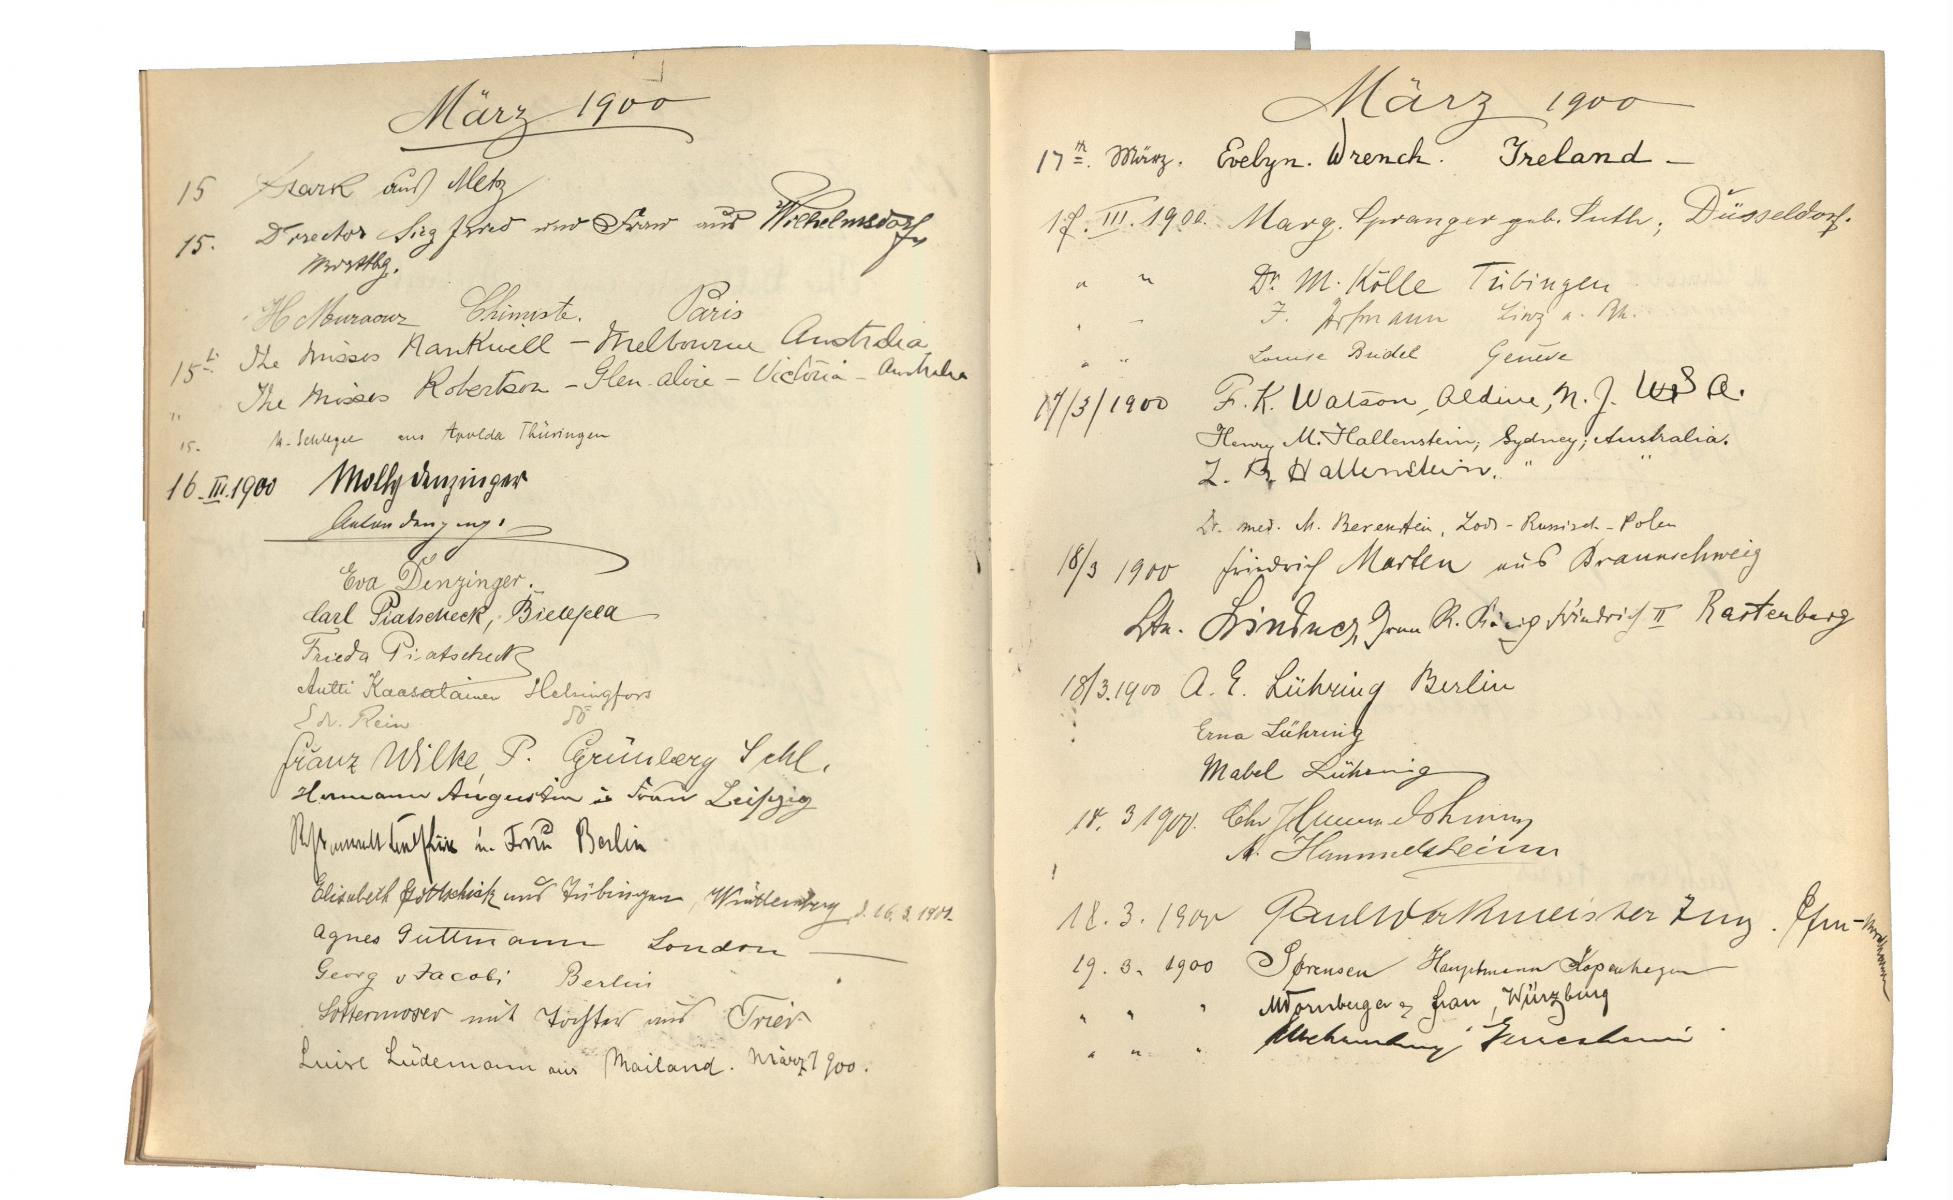 März 1900
15 Stark aus Metz
15. Director Siegfried und Frau aus Wilhelmsdorf
Württbg.
H Chimiste. Paris
15th The Misses Mankwell – Melbourne Australia
" The Misses Robertson – Glen-alvie – Victoria – Australia
15. M. Schlegel aus Apolda Thüringen
16.III.1900 Molly Denzinger
Eva Denzinger.
Carl Piatscheck, Bielefeld
Frieda Piatscheck
Antti Kaasalainen Helsingfors
Edv. Rein do
Franz Wilke P. Grünberg Schl.
Hermann Augustin u Frau Leipzig
Rechtsanwalt u. Frau Berlin
Elisabeth Gottschick aus Tübingen, Württemberg d. 16.3.1900
Agnes Guttmann London
Georg v Jacobi Berlin
Sottermoser mit Tochter aus Trier
Luise Lüdemann aus Mailand. März 1900.
März 1900
17th. März. Evelyn. Wrench. Ireland –
17. III. 1900. Marg. Spranger geb. Suth; Düsseldorf.
" " Dr. M. Kölle Tübingen
" – J. Linz a. Rh.
" " Louise Budel Genève
17/3/1900 F. K. Watson, Aldine, N. J. USA.
Henry M. Hallenstein; Sydney; Australia.
Z. Hallenstein. " "
Dr. med. M. Berenstein, Lodz - Russisch - Polen
18/3 1900 Friedrich Marten aus Braunschweig
Ltn. Gren. R. König Friedrich II Rastenburg
18/3.1900 A. E. Lühring Berlin
Erna Lühring
Mabel Lühring
18. 3 1900. Chr Hammelsheim
A. Hammelsheim
18. 3. 1900 Paul Werkmeister Ing.
19. 3. 1900 Sørensen Hauptmann Kopenhagen
" " " Dornberger & Frau, Würzburg
" " "